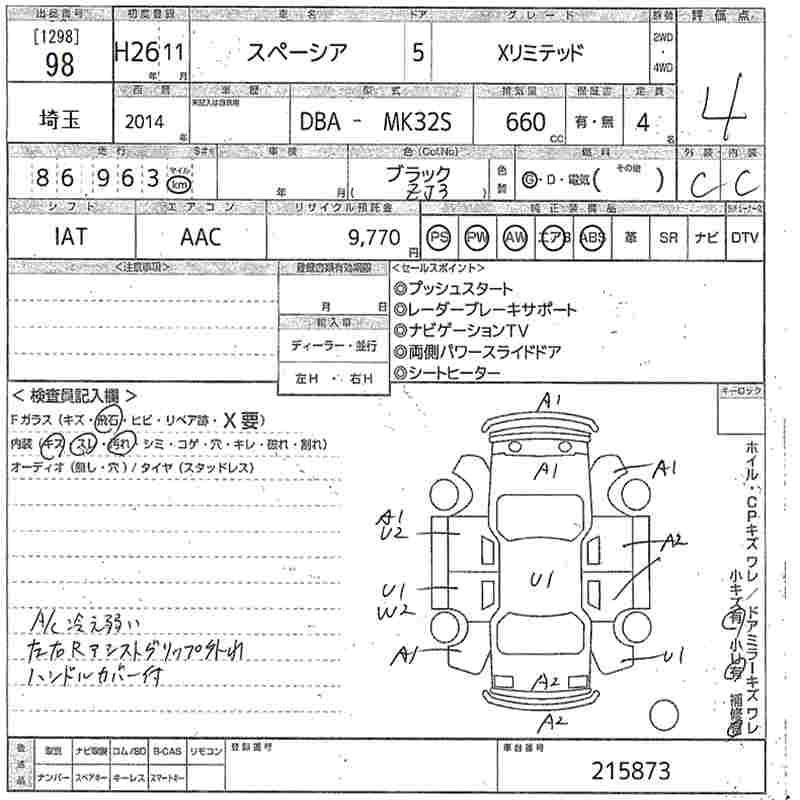 出品番号 初度登録 車名 ドア グレード 駆動 評価点
[1298] 98 H26 11 年 月 スペーシア 5 Xリミテッド 2WD・4WD 4
埼玉 百曆 車歴 型式 排気量 保証書 定員
2014 年 未記入は自家用 DBA - MK32S 660 CC 有・無 4 名
走行 車検 色(Col.No) 燃料 外装 内装
86,963 マイル km 年 月 ブラック ( ZJ3 ) 色替 G・D・電気( その他 ) C C
シフト エアコン リサイクル預託金 純正装備品
IAT AAC 9,770 円 PS PW AW エアB ABS 革 SR ナビ DTV
<注意事項> 登録書類有効期限 <セールスポイント>
月 日 ◎プッシュスタート
輸入車 ◎レーダーブレーキサポート
ディーラー・並行 ◎ナビゲーションTV
左H ・ 右H ◎両側パワースライドドア
◎シートヒーター
<検査員記入欄> キーロック
Fガラス(キズ・飛石・ヒビ・リペア跡・X要)
内装(キズ・スレ・汚れ・シミ・コゲ・穴・キレ・破れ・割れ)
オーディオ(無し・穴)/タイヤ(スタッドレス)
A1
A1 A1
A1
U2 A2
U1 U1
W2
A1 U1
A2
A2
A/C冷え弱い
左右Rアシストグリップ外れ
ハンドルカバー付
ホイル・CPキズワレ/ドアミラーキズワレ
小キズ有 小U有 補修
後送品 取説 ナビ取説 コム/SD B-CAS リモコン 登録番号 車台番号
ナンバー スペアキー キーレス スマートキー 215873